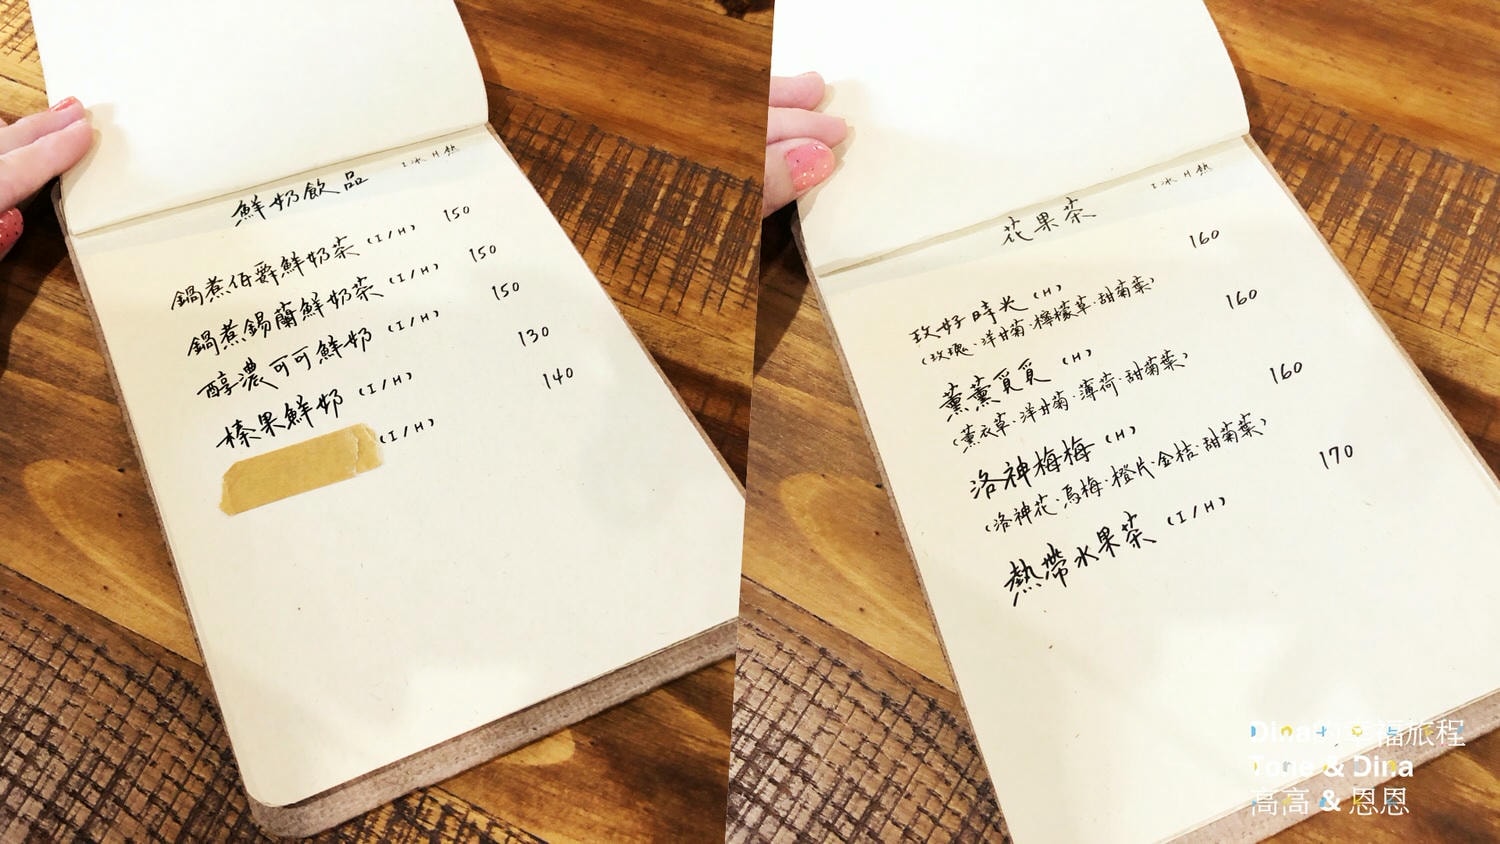 I 冰 H 熱
鮮奶飲品
鍋煮伯爵鮮奶茶 (I/H) 150
鍋煮錫蘭鮮奶茶 (I/H) 150
醇濃可可鮮奶 (I/H) 150
榛果鮮奶 (I/H) 130
(I/H) 140
I 冰 H 熱
花果茶
玫好時光 (H) 160
(玫瑰·洋甘菊·檸檬草·甜菊葉)
薰薰覓覓 (H) 160
(薰衣草·洋甘菊·薄荷·甜菊葉)
洛神梅梅 (H) 160
(洛神花·烏梅·橙片·金桔·甜菊葉)
熱帶水果茶 (I/H) 170
Dina的幸福旅程
Tone & Dina
高高 & 恩恩